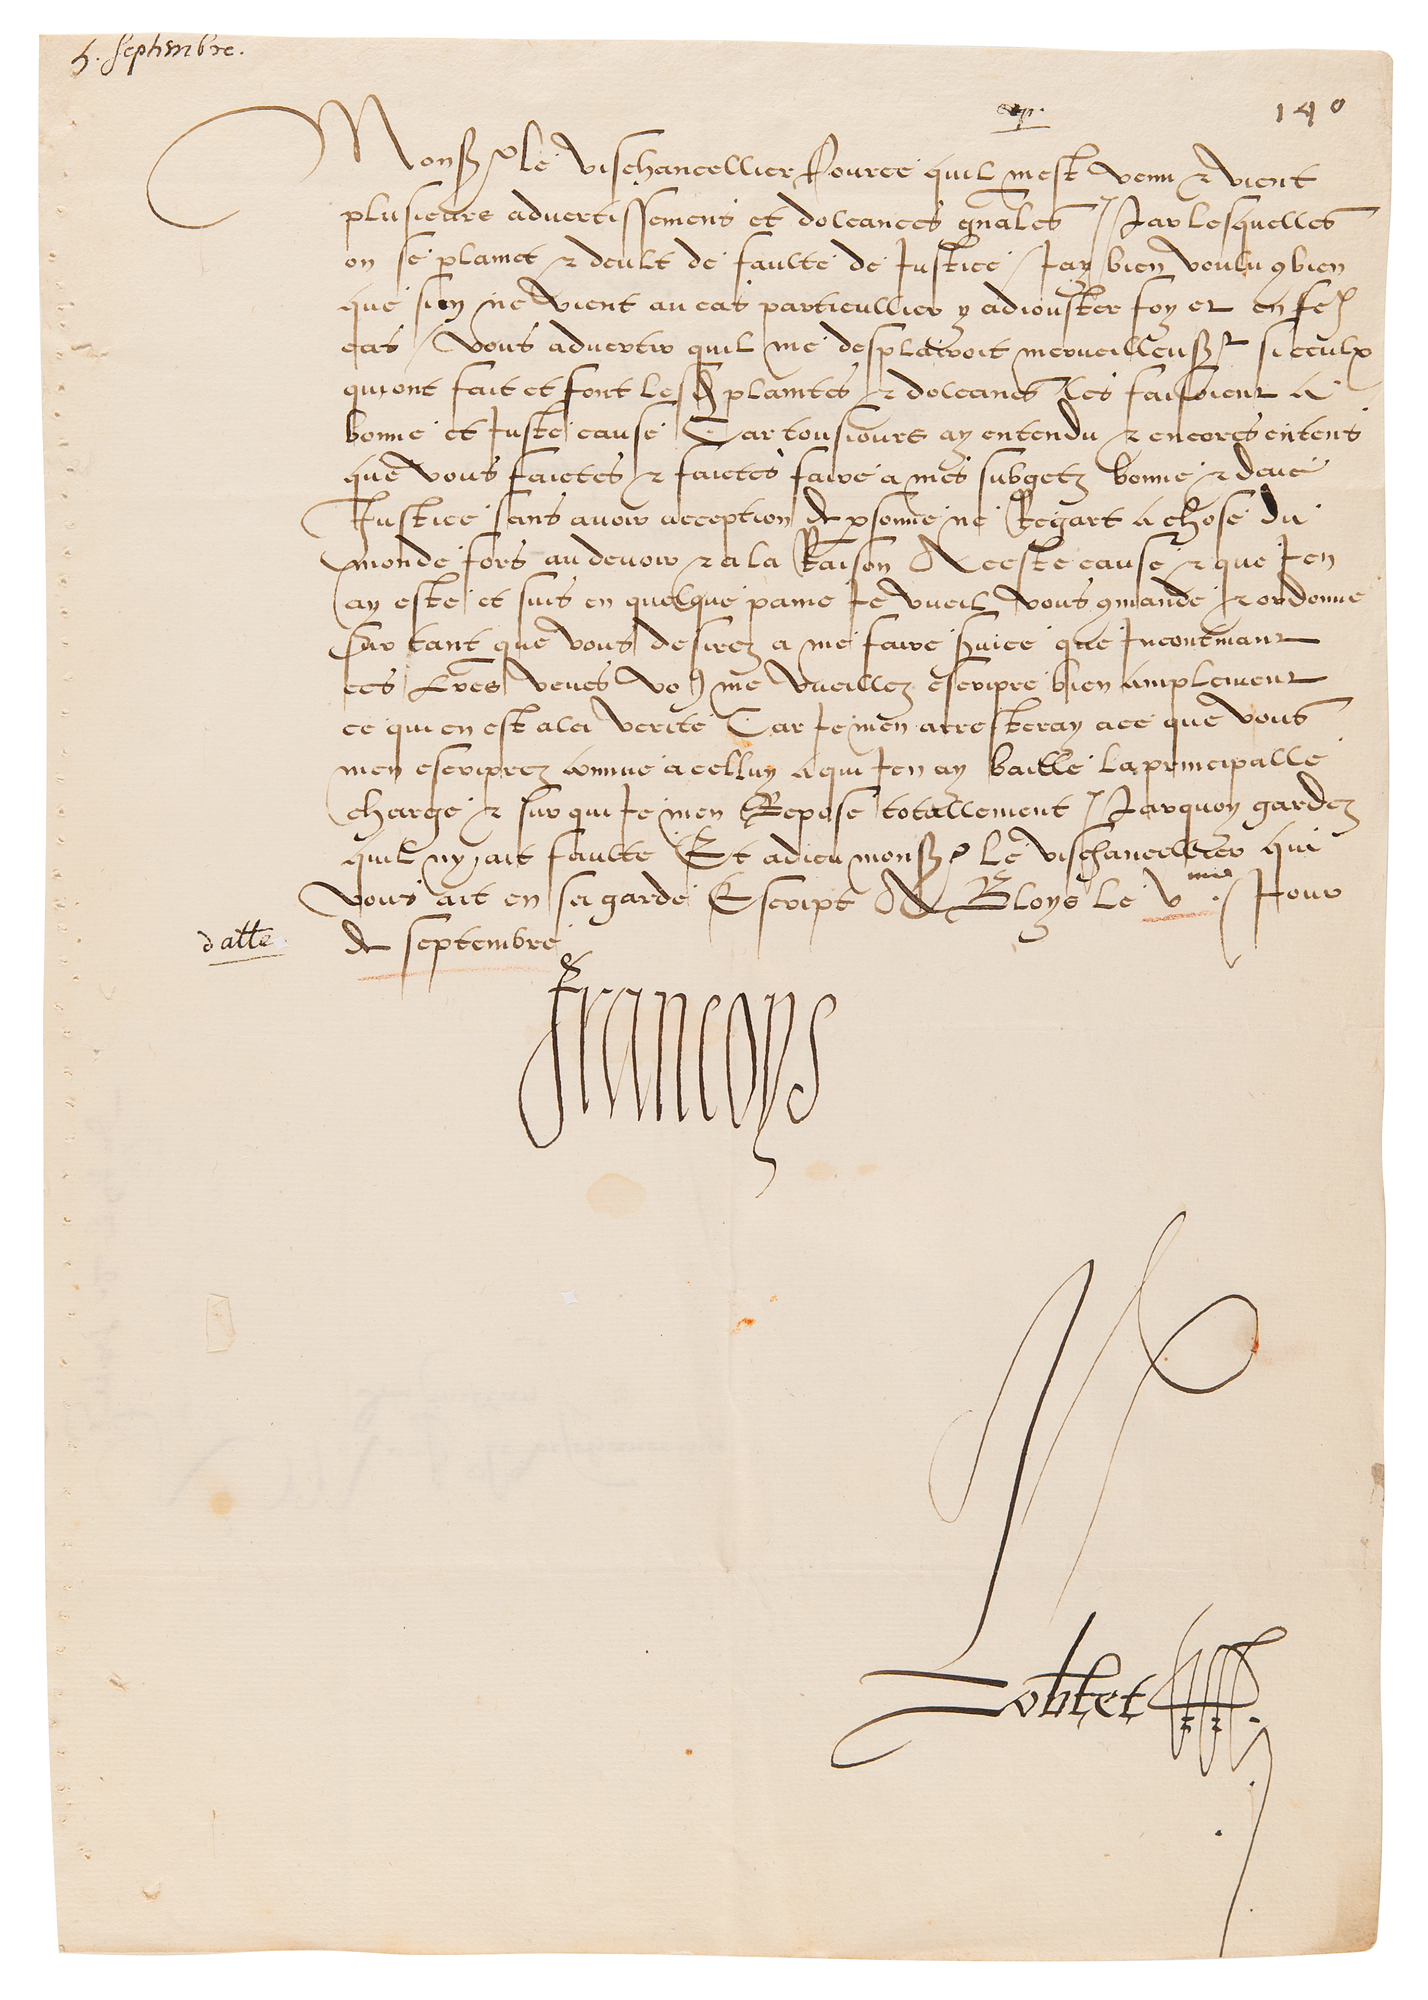 5. septembre.
140
Monsr le vischancellier Pource quil mest venu & vient
plusieurs advertissemens et doleances gnales / Par lesquelles
on se plainct & deult de faulte de Justice / Jay bien voulu 9bien
que sy ne vient au cas particullier y adiouster foy et en se
cas / vous advertir quil me desplairoit merveilleusemt si ceulx
qui ont fait et font lesd plaintes & doleances les faisoient a
bonne et Juste cause Car tousiours ay entendu & encores entens
que vous faictes & faictes faire a mes subgetz bonne & deue
Justice sans avoir acception de psonne ne Regart a chose du
monde fors au devoir & a la Raison A ceste cause & que Jen
ay este et suis en quelque paine Je vueil vous 9mande & ordonne
sur tant que vous desirez a me faire svice que Incontinant
ces lres veues vo9 me vueillez escripre bien amplement
ce qui en est a la verite Car Je men arresteray a ce que vous
men escriprez comme a celluy a qui Jen ay baille la principalle
charge & sur qui Je men Repose totallement / Parquoy gardez
quil ny ait faulte Et adieu monsr le vischancellier qui
vous ait en sa garde Escript A Bloys le vme Jour
datte.
de septembre
Francoys
Robertet